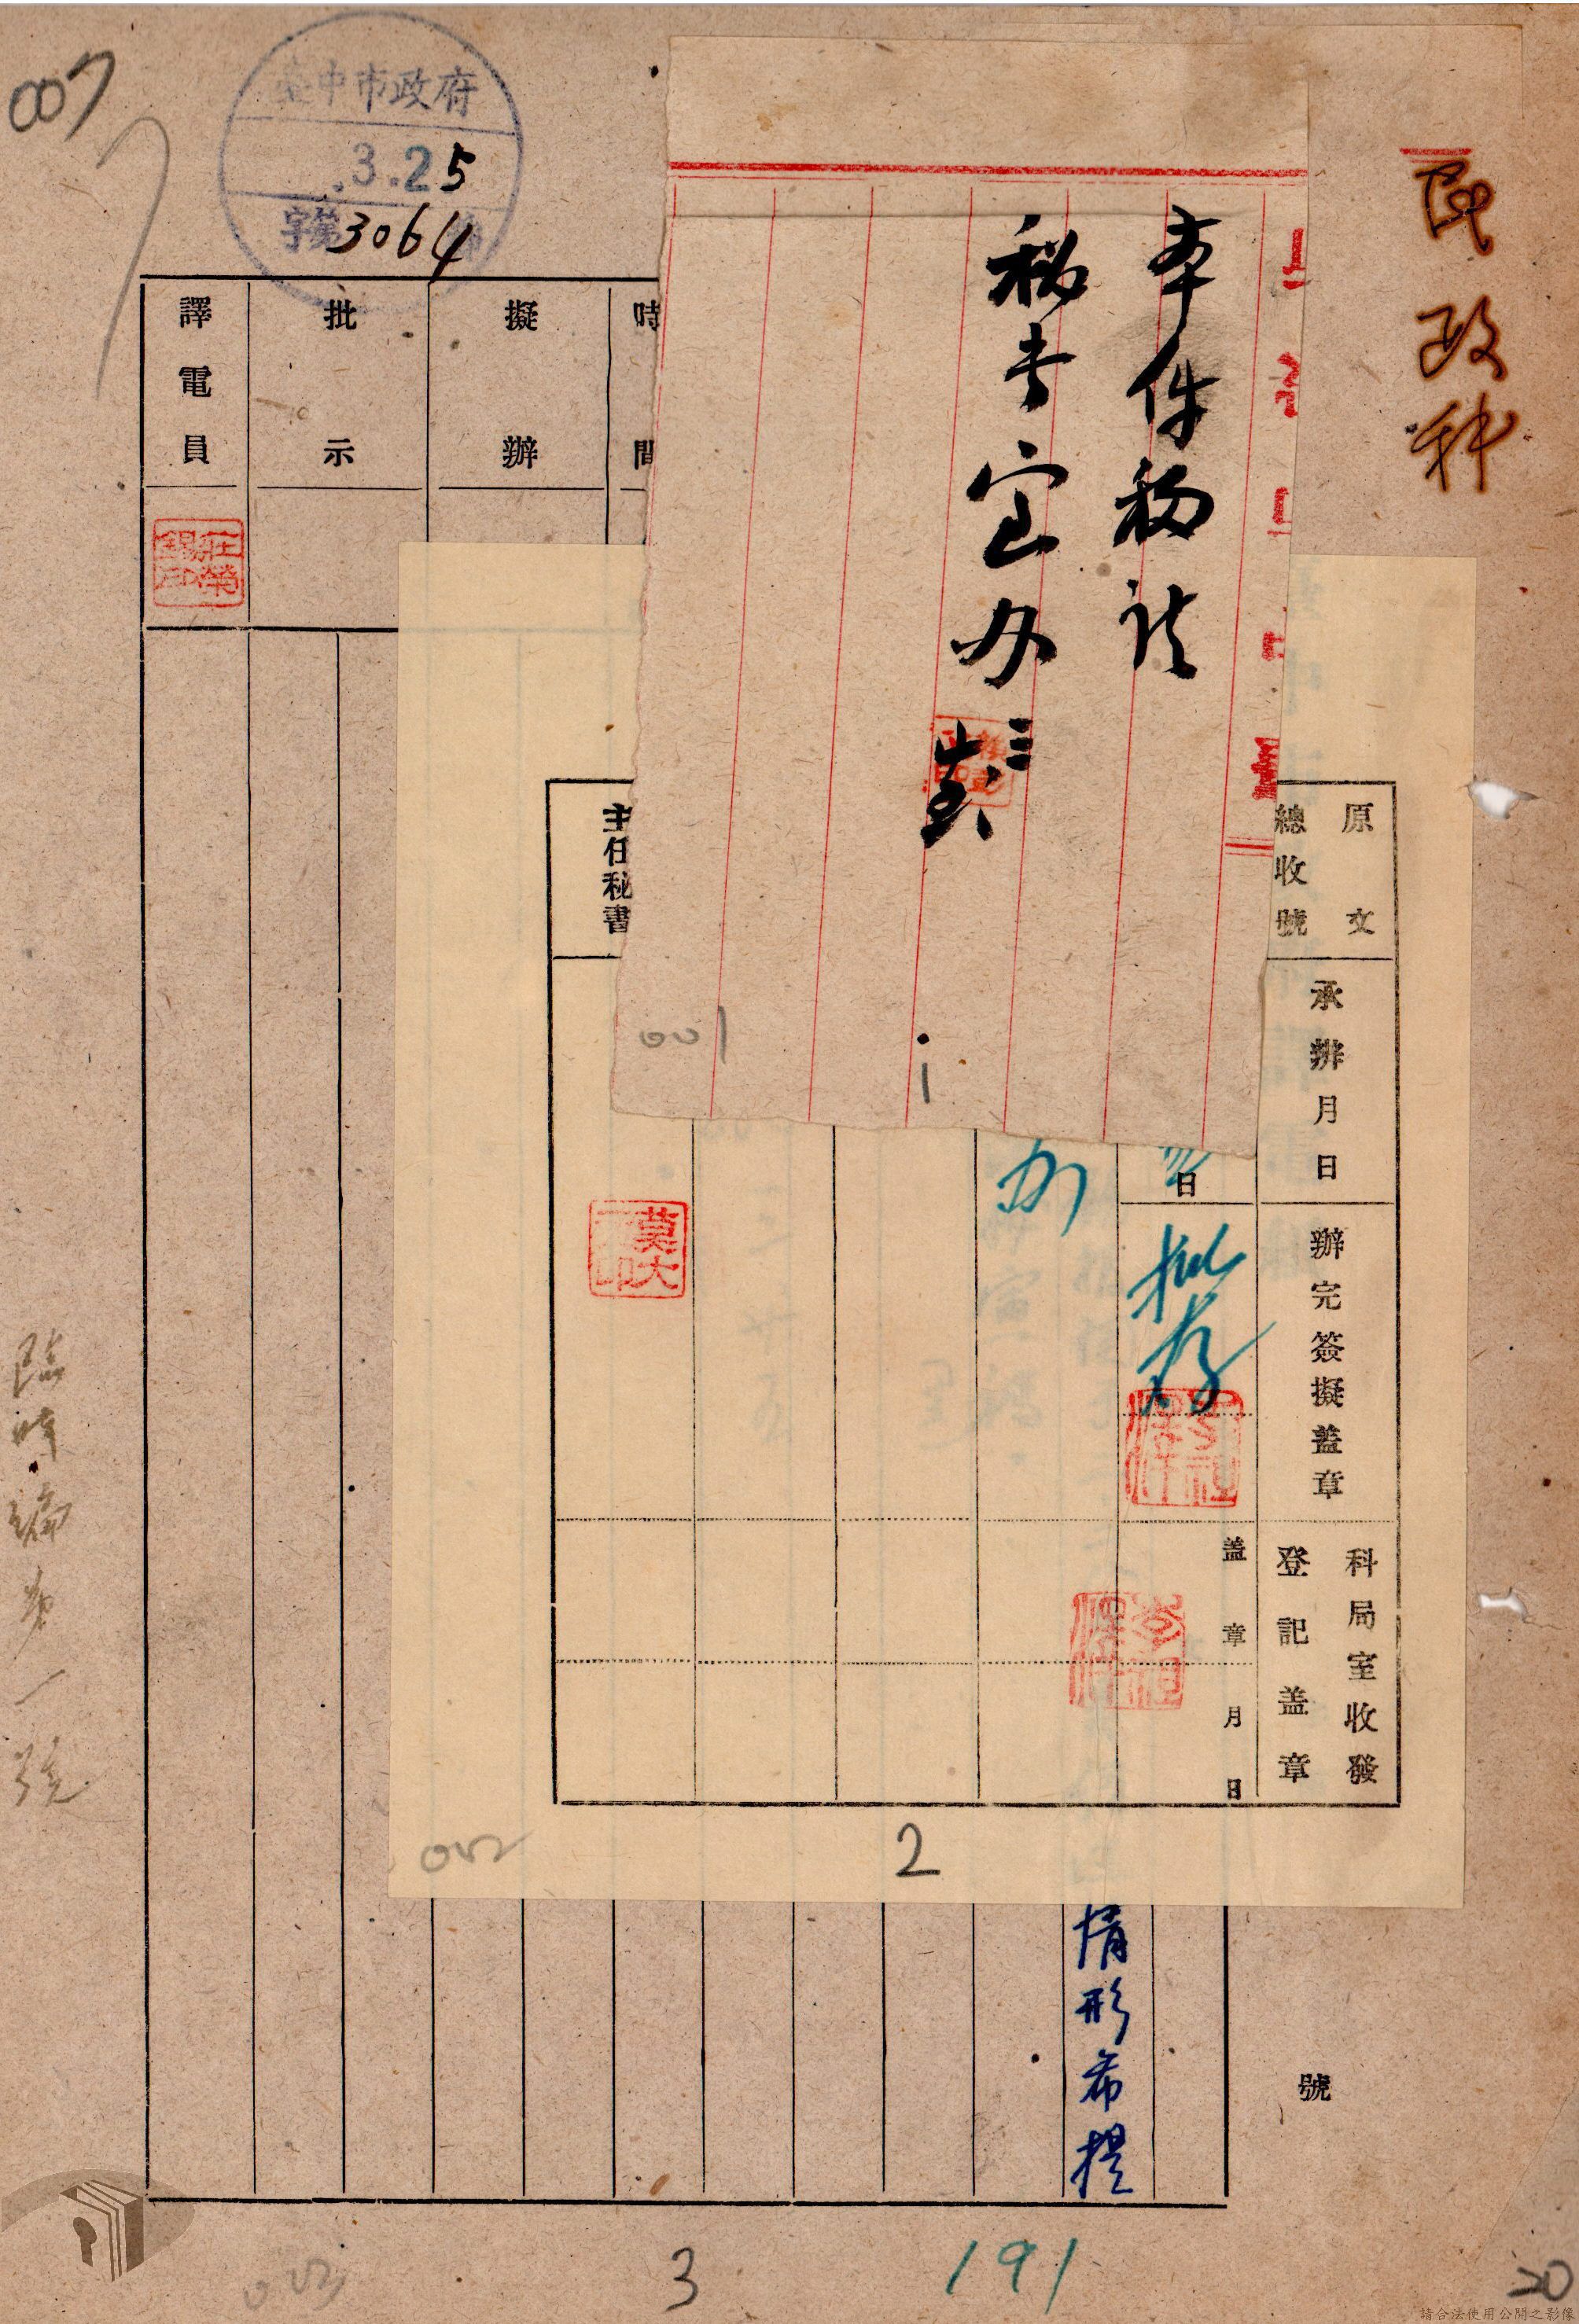 007
臺中市政府
.3.25
字第3064號
民政科
本件移請
秘書室办
001
1
原文
總收號
承辦月日
辦完簽擬蓋章
科局室收發
登記蓋章
日
批存
蓋章 月 日
办
主任秘書
莫大
印
002
2
情形希提
號
時間
擬辦
批示
譯電員
莊榮
錫印
臨時編第一號
003
3
191
20
請合法使用公開之影像